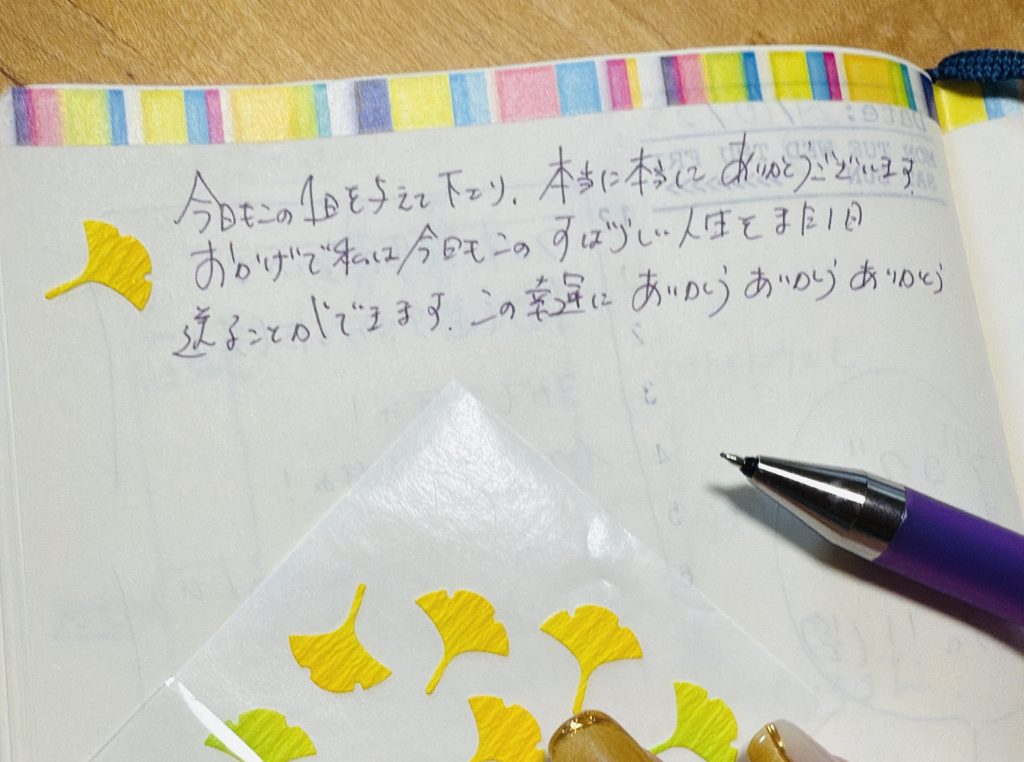 今日もこの1日を与えて下さり、本当に本当にありがとうございます。
おかげで私は今日もこのすばらしい人生をまた1日
送ることができます。この幸運にありがとうありがとうありがとう
Date:
MON TUE WED THU FRI
SAT SUN
2
3
4
5
6